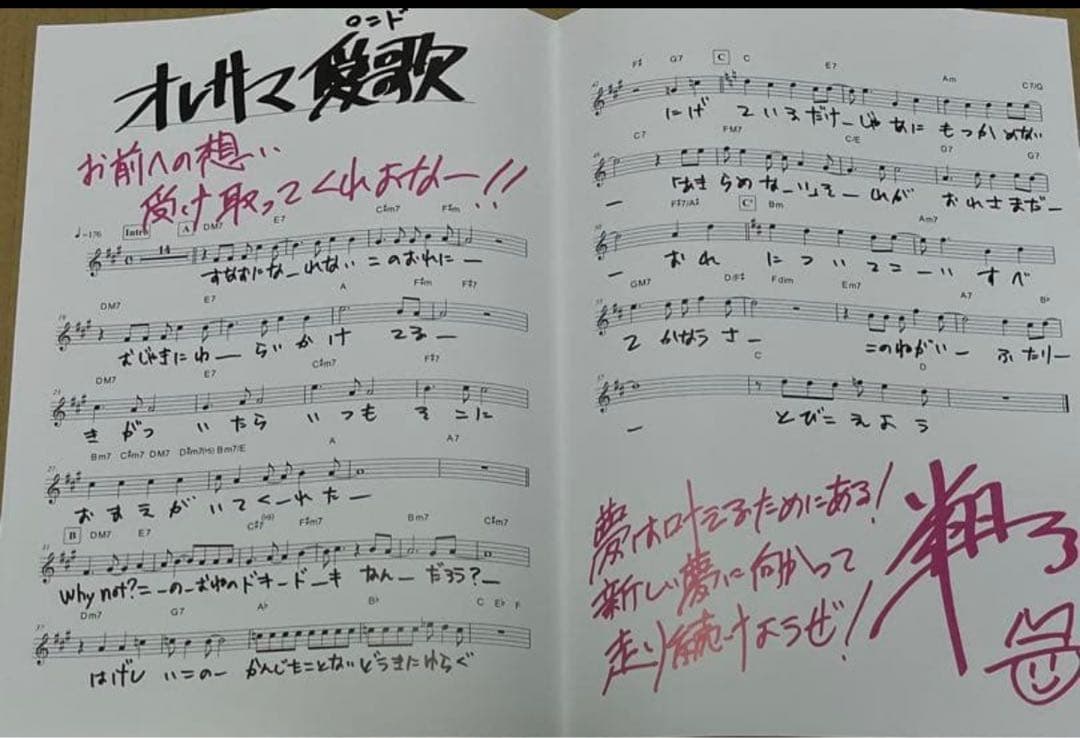 ロンド
オレサマ愛歌
お前への想い
受け取ってくれよなー!!
♩=176 Intro A DM7 E7 C#m7 F#m
14
すなおになーれない このおれにー
DM7 E7 A F#m F#7
むじゃきにわー らいかけ てるー
DM7 E7 C#m7 F#7
きがつ いたら いつも そこに
Bm7 C#m7 DM7 D#m7(b5) Bm7/E A A7
おまえが いてくーれたー
B DM7 E7 C#7(b9) F#m7 Bm7 C#m7
Why not?こーのーむねのドキードーキ なんー だろう?ー
Dm7 G7 Ab Bb C Eb F
はげし いこのー かんじたことないどうきにゆらぐ
F# G7 C C E7 Am C7/G
にげ ているだけーじゃなにも つかめない
C7 FM7 C/E D7 G7
ー 「あきらめなーい」そーれが おれさまだー
F#7/A# C' Bm Am7
ー おれ についてこーい すべ
GM7 D/F# Fdim Em7 A7 Bb
て かなうさー このねがいー ふたりー
C D
ー とびこえよう
夢は叶えるためにある!
新しい夢に向かって
走り続けようぜ!
翔